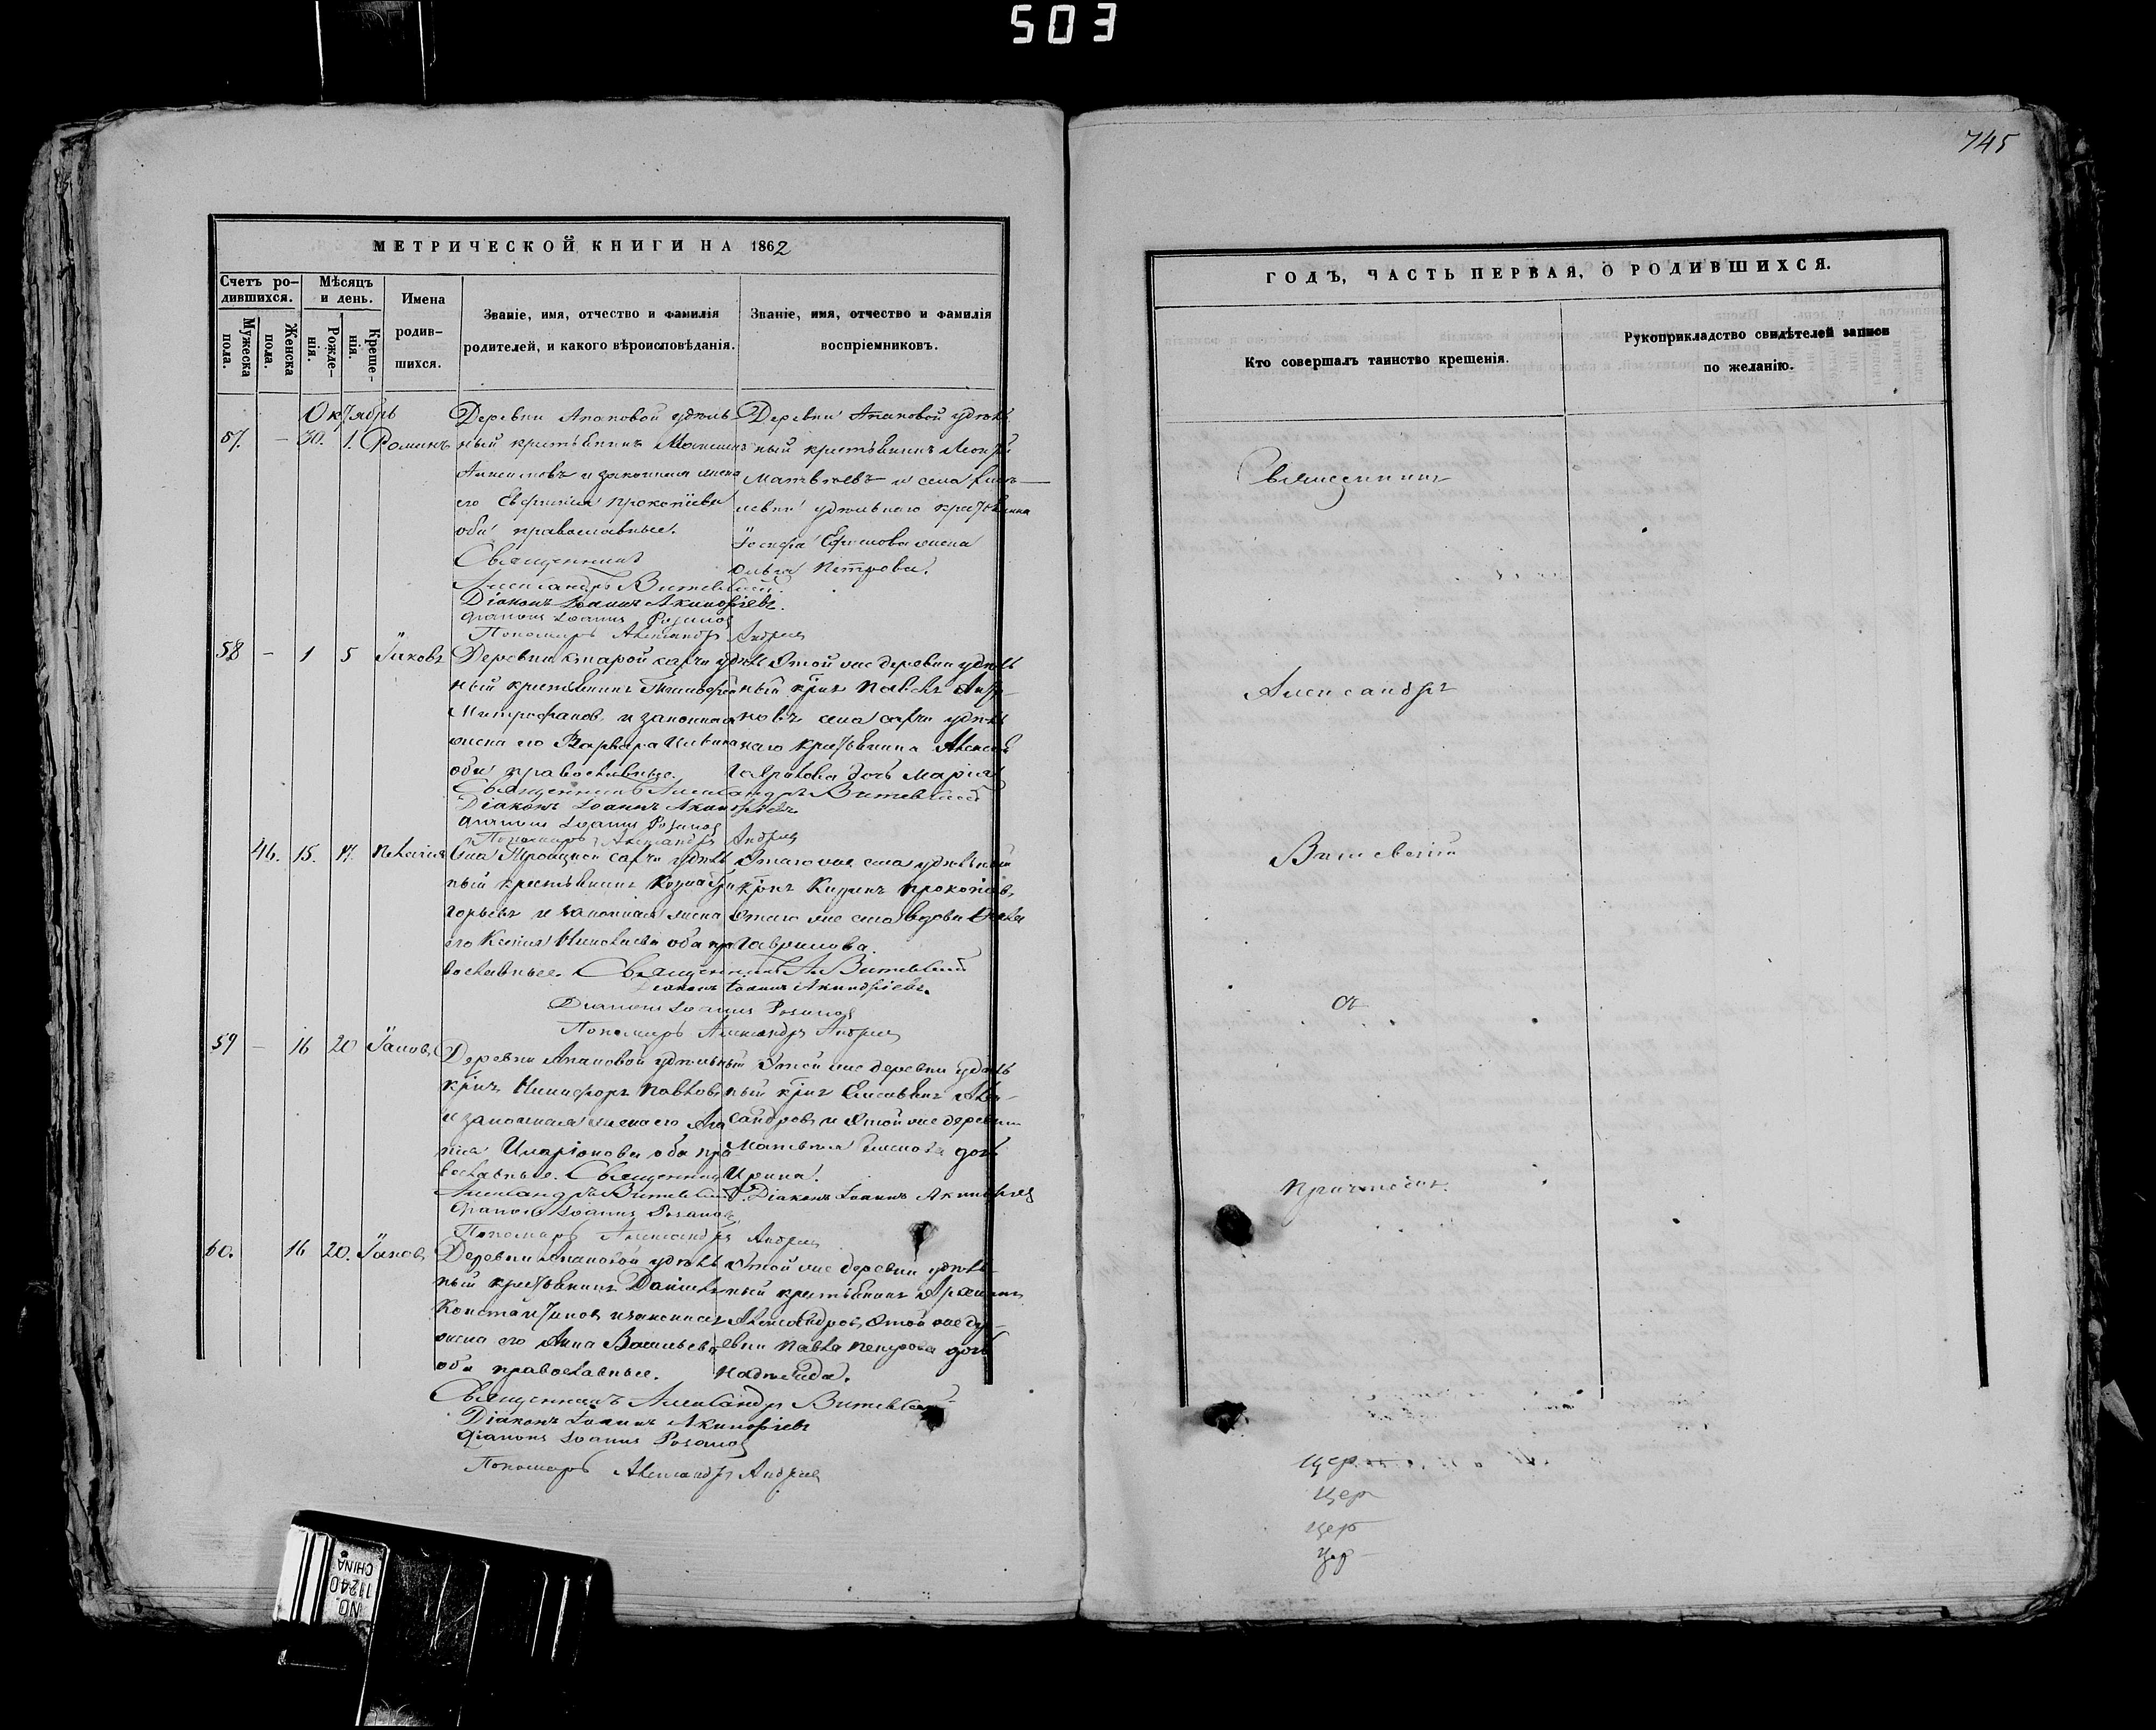 503
745
МЕТРИЧЕСКОЙ КНИГИ НА 1862
Счетъ ро-
дившихся.
Мужеска
пола.
Женска
пола.
Мѣсяцъ
и день.
Рожде-
нія.
Креще-
нія.
Имена
родив-
шихся.
Званіе, имя, отчество и фамилія
родителей, и какого вѣроисповѣданія.
Званіе, имя, отчество и фамилія
воспріемниковъ.
Октябрь
57. – 30. 1. Романъ
Деревни Апаковой удѣль
ный крестьянинъ
и законная жена
его Прокопіева
оба православные.
Священникъ
Александръ Витевскій.
Діаконъ Іоаннъ Акинфіевъ.
Діаконъ Іоаннъ Розановъ
Пономарь Александръ Андреев
Деревни Апаковой удѣль
ный крестьянинъ
Матвѣевъ и села
удѣльнаго крестьянина
Іосифа Ефимова жена
Ольга Петрова.
58 – 1 5 Іаковъ
Деревни Старой удѣль
ный крестьянинъ Тимофей
Митрофановъ и законная
жена его Варвара
оба православные.
Священникъ Александръ Витевскій
Діаконъ Іоаннъ Акинфіевъ
Діаконъ Іоаннъ Розановъ
Пономарь Александръ Андреев
Этой же деревни удѣль
ный кр̃нъ Павелъ
новъ села удѣль
наго крестьянина Алексѣя
Гаврилова дочь Марія
46. 15. 17. Пелагія
Села Троицкой удѣль
ный крестьянинъ Козма Гри
горьевъ и законная жена
его Ксенія Николаева оба пра
вославные. Священникъ А. Витевскій
Діаконъ Іоаннъ Акинфіевъ.
Діаконъ Іоаннъ Розановъ
Пономарь Александръ Андреев
Этого же села удѣльный
кр̃нъ Прокопіевъ,
этого же села вдова
Гаврилова.
59 – 16 20 Іаковъ
Деревни Апаковой удѣльный
кр̃нъ Никифоръ Павловъ
и законная жена его Ага
пія Иларіонова оба пра
вославные. Священникъ
Александръ Витевскій. Діаконъ Іоаннъ Акинфіев
Діаконъ Іоаннъ Розановъ
Пономарь Александръ Андреев
Этой же деревни удѣль
ный кр̃нъ Алек-
сандровъ и этой же деревни
дочь
Ирина.
60. 16 20. Іаковъ
Деревни Апаковой удѣль
ный крестьянинъ Даніилъ
Константиновъ и законная
жена его Анна Васильева
оба православные.
Священникъ Александръ Витевскій
Діаконъ Іоаннъ Акинфіевъ
Діаконъ Іоаннъ Розановъ
Пономарь Александръ Андреев
Этой же деревни удѣль
ный крестьянинъ
Александровъ, этой же дер-
евни Павла Петрова дочь
Надежда.
ГОДЪ, ЧАСТЬ ПЕРВАЯ, О РОДИВШИХСЯ.
Кто совершалъ таинство крещенія.
Рукоприкладство свидѣтелей записи
по желанію.
Священникъ
Александръ
Витевскій
съ
Причтомъ.
Цер
Цер
Цер
Цер
NO.
11240
CHINA